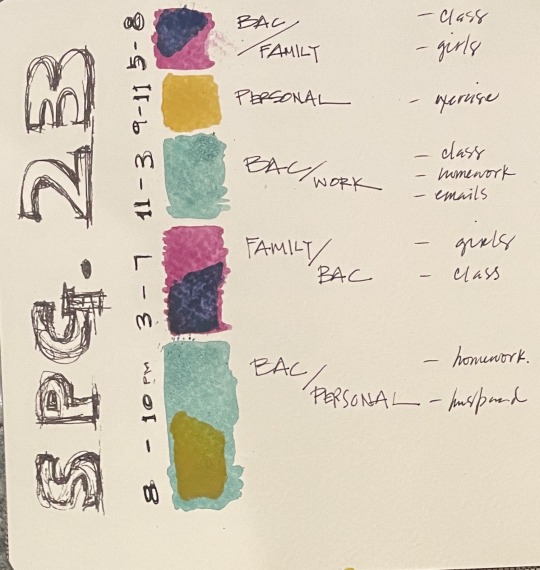 SPG. 23
5-8
BAC/
FAMILY
- class
- girls
9-11
PERSONAL
- exercise
11-3
BAC/
WORK
- class
- homework
- emails
3-7
FAMILY/
BAC
- girls
- class
8-10 PM
BAC/
PERSONAL
- homework.
- husband